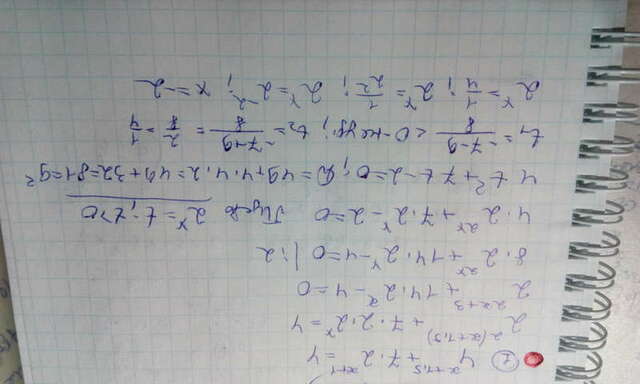 ① 4^{x+1,5} + 7 · 2^{x+1} = 4
2^{2(x+1,5)} + 7 · 2 · 2^x = 4
2^{2x+3} + 14 · 2^x - 4 = 0
8 · 2^{2x} + 14 · 2^x - 4 = 0 | : 2
4 · 2^{2x} + 7 · 2^x - 2 = 0 Пусть 2^x = t; t > 0
4t² + 7t - 2 = 0; D = 49 + 4 · 4 · 2 = 49 + 32 = 81 = 9²
t₁ = \frac{-7-9}{8} < 0 - не уд; t₂ = \frac{-7+9}{8} = \frac{2}{8} = \frac{1}{4}
2^x = \frac{1}{4}; 2^x = \frac{1}{2²}; 2^x = 2^{-2}; x = -2